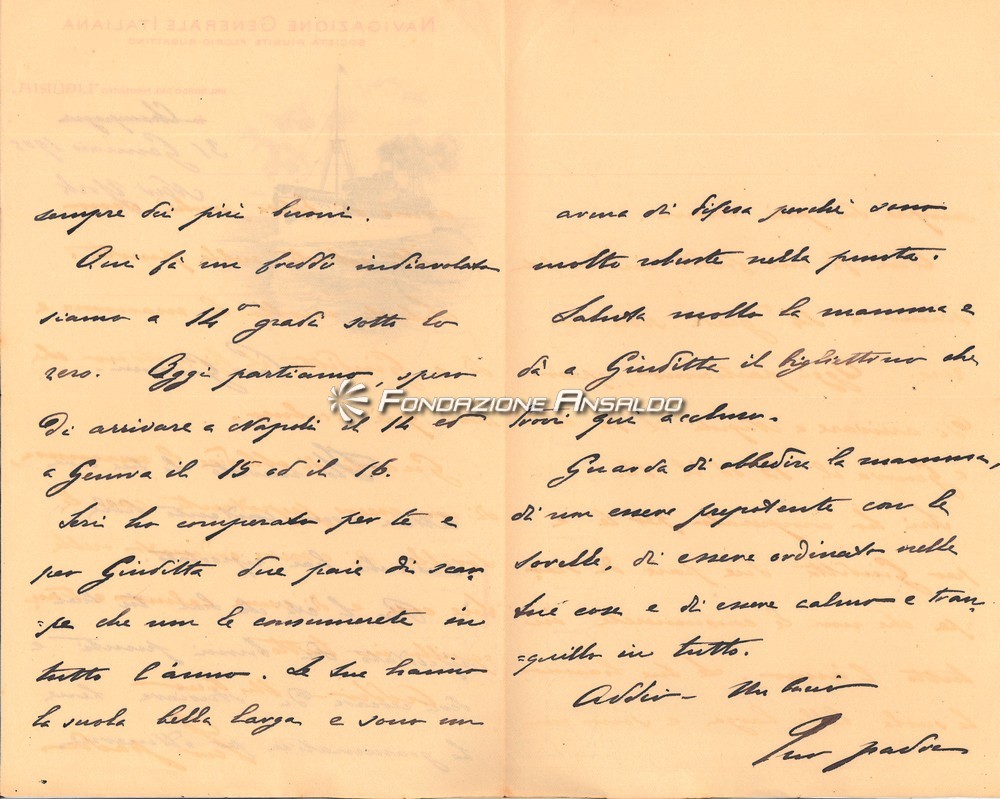 sempre dei più buoni.
Qui fà un freddo indiavolato
siamo a 14° gradi sotto lo
zero. Oggi partiamo, spero
di arrivare a Napoli il 14 ed
a Genova il 15 od il 16.
Ieri ho comperato per te e
per Giuditta due paie di scar-
=pe che non le consumerete in
tutto l'anno. Le tue hanno
la suola bella larga e sono un
arma di difesa perchè sono
molto robuste nella punta.
Saluta molto la mamma e
dà a Giuditta il bigliettino che
trovi qui accluso.
Guarda di obbedire la mamma,
di non essere prepotente con le
sorelle, di essere ordinato nelle
tue cose e di essere calmo e tran-
=quillo in tutto.
Addio – Un bacio
Tuo padre
FONDAZIONE ANSALDO
NAVIGAZIONE GENERALE ITALIANA
SOCIETÀ RIUNITE FLORIO-RUBATTINO
"LIGURIA"
31 Gennaio
New York